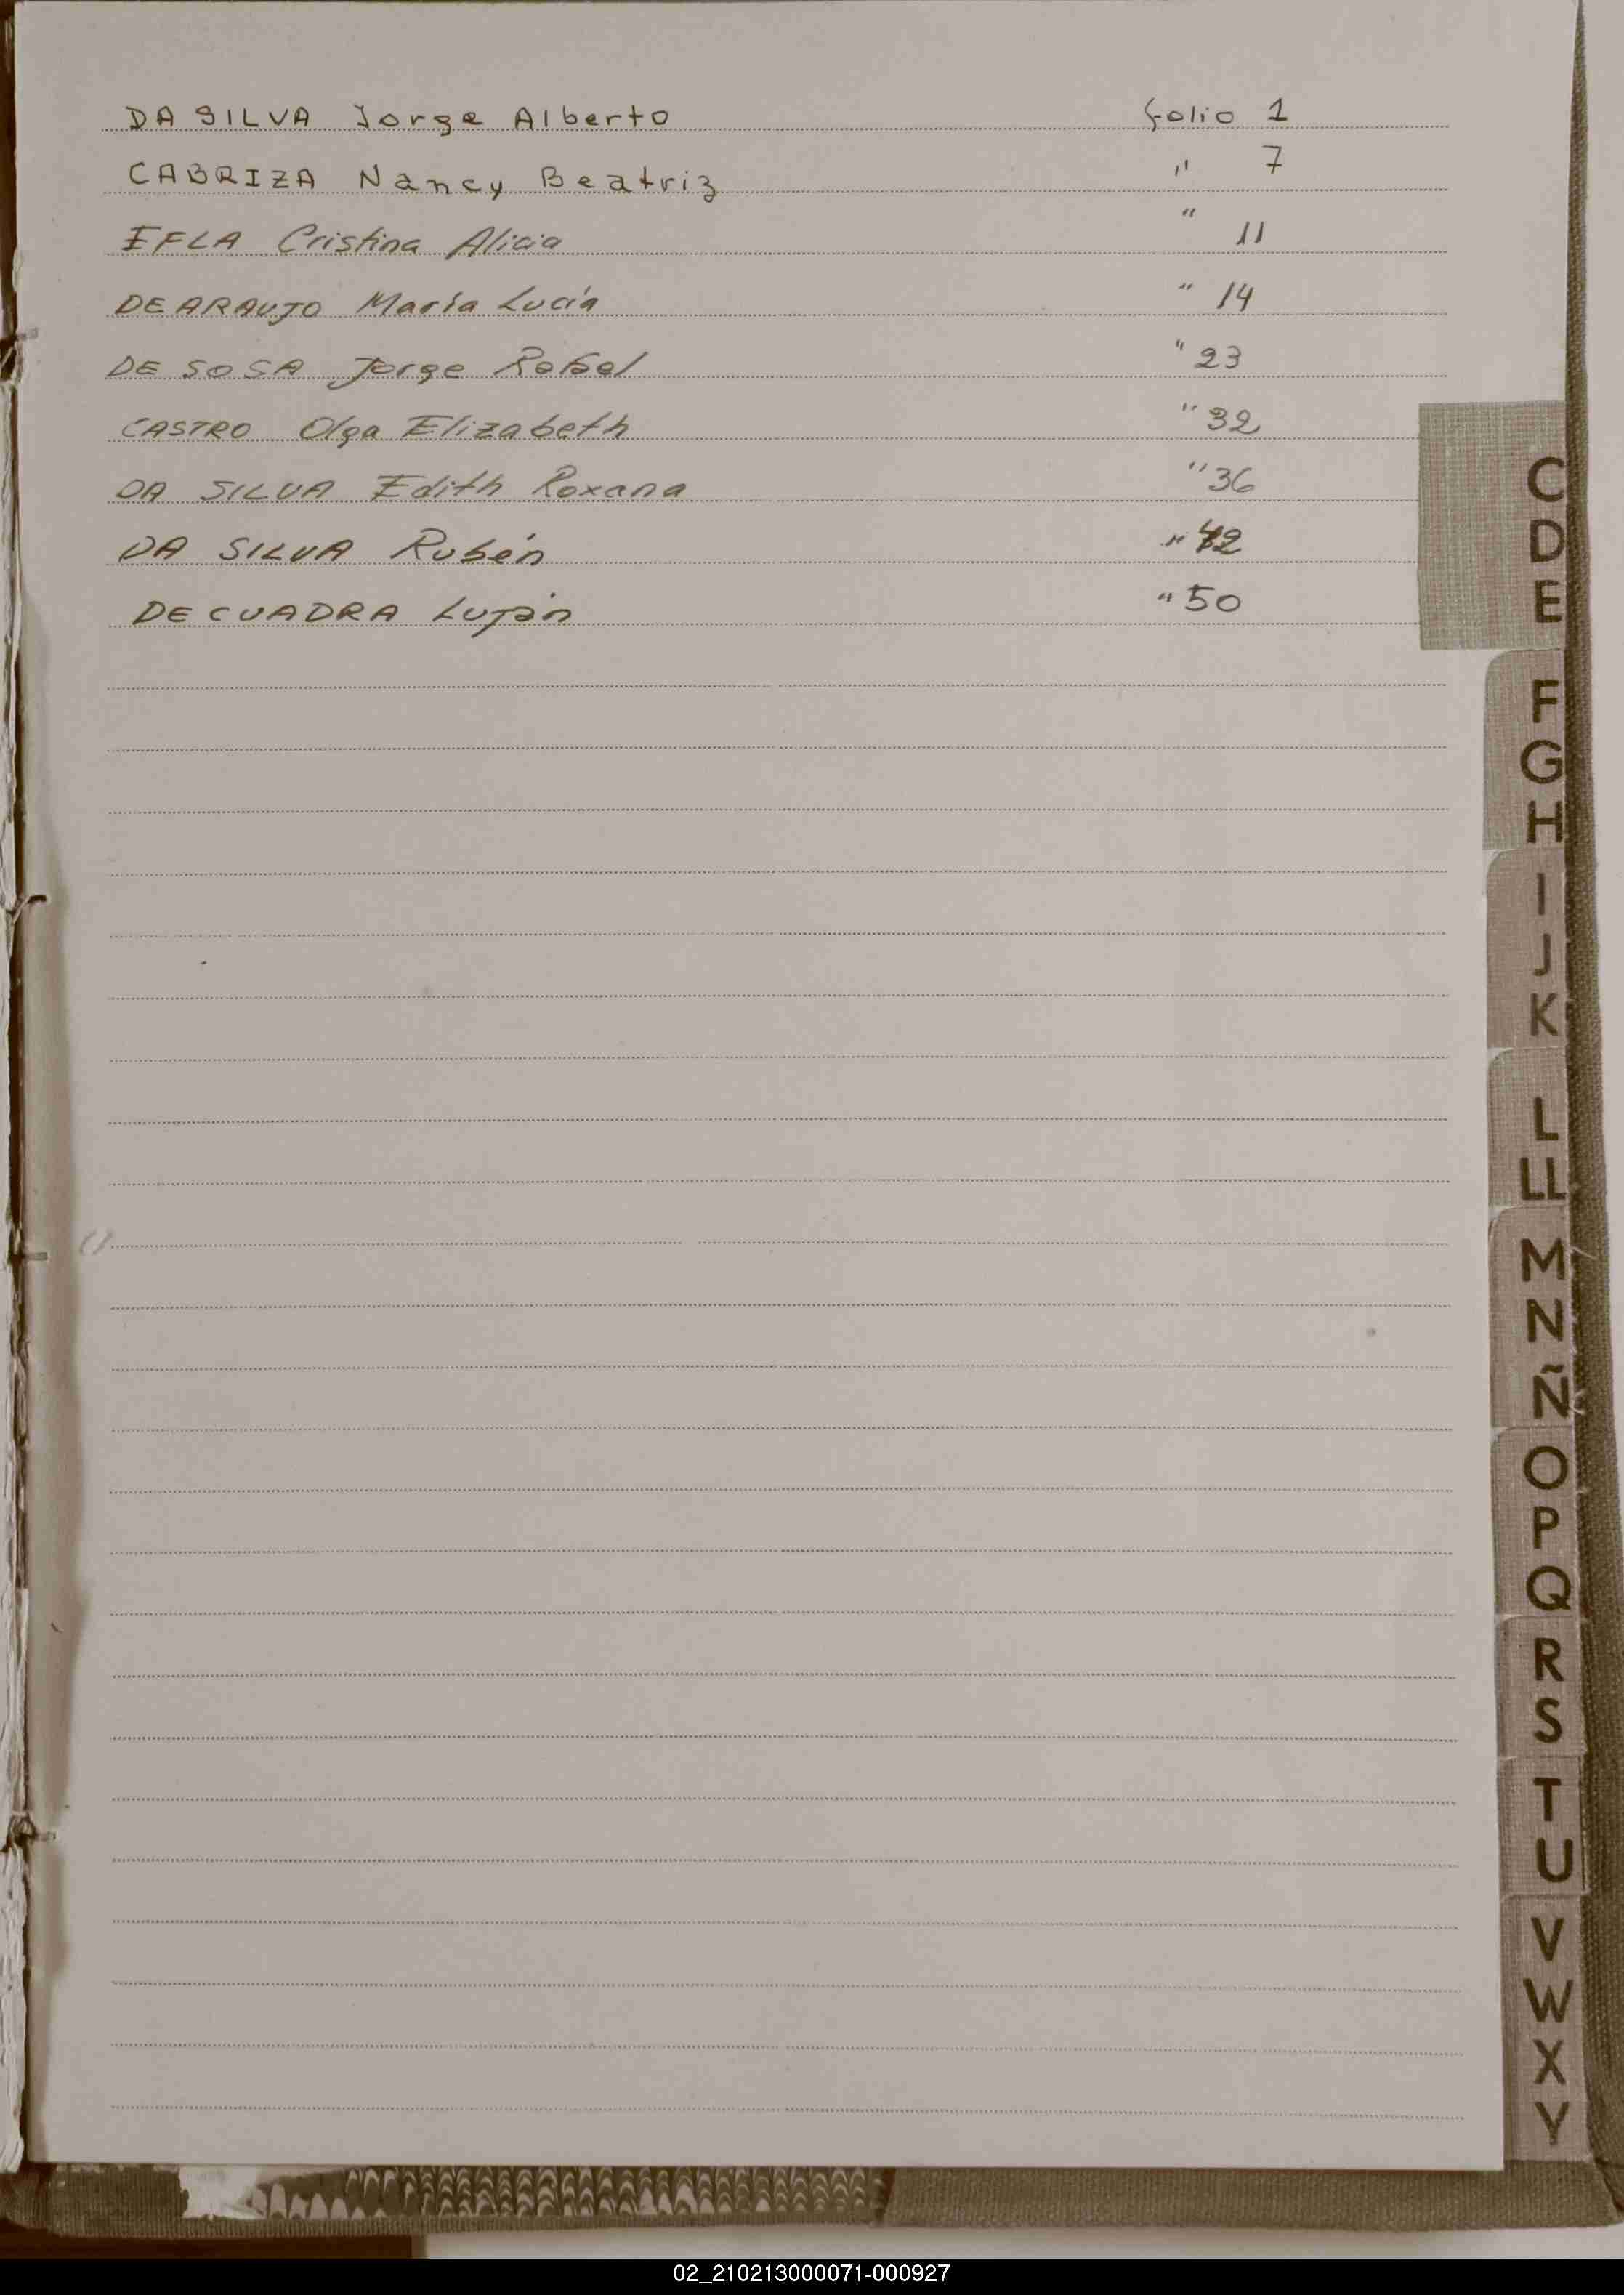 DA SILVA Jorge Alberto folio 1
CABRIZA Nancy Beatriz " 7
EFLA Cristina Alicia " 11
DE ARAUJO María Lucía " 14
DE SOSA Jorge Rafael " 23
CASTRO Olga Elizabeth " 32
DA SILVA Edith Roxana " 36
DA SILVA Rubén " 42
DE CUADRA Luján " 50
C
D
E
F
G
H
I
J
K
L
LL
M
N
Ñ
O
P
Q
R
S
T
U
V
W
X
Y
02_210213000071-000927